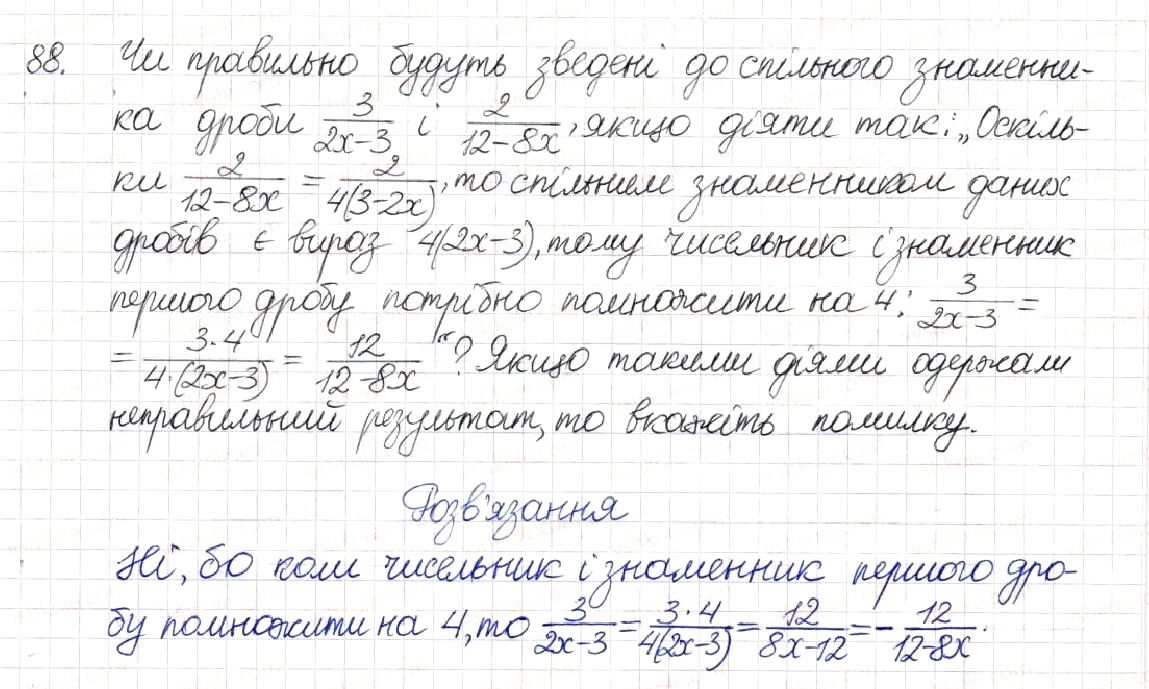 88. Чи правильно будуть зведені до спільного знаменни-
ка дроби 3/(2x-3) і 2/(12-8x), якщо діяти так: „Оскіль-
ки 2/(12-8x) = 2/(4(3-2x)), то спільним знаменником даних
дробів є вираз 4(2x-3), тому чисельник і знаменник
першого дробу потрібно помножити на 4: 3/(2x-3) =
= (3·4)/(4·(2x-3)) = 12/(12-8x)“? Якщо такими діями одержали
неправильний результат, то вкажіть помилку.
Розв'язання
Ні, бо коли чисельник і знаменник першого дро-
бу помножити на 4, то 3/(2x-3) = (3·4)/(4(2x-3)) = 12/(8x-12) = -12/(12-8x).